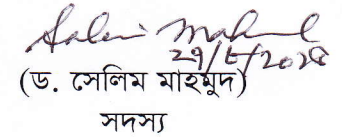 Salim Mahmud
29/৮/2018
(ড. সেলিম মাহমুদ)
সদস্য